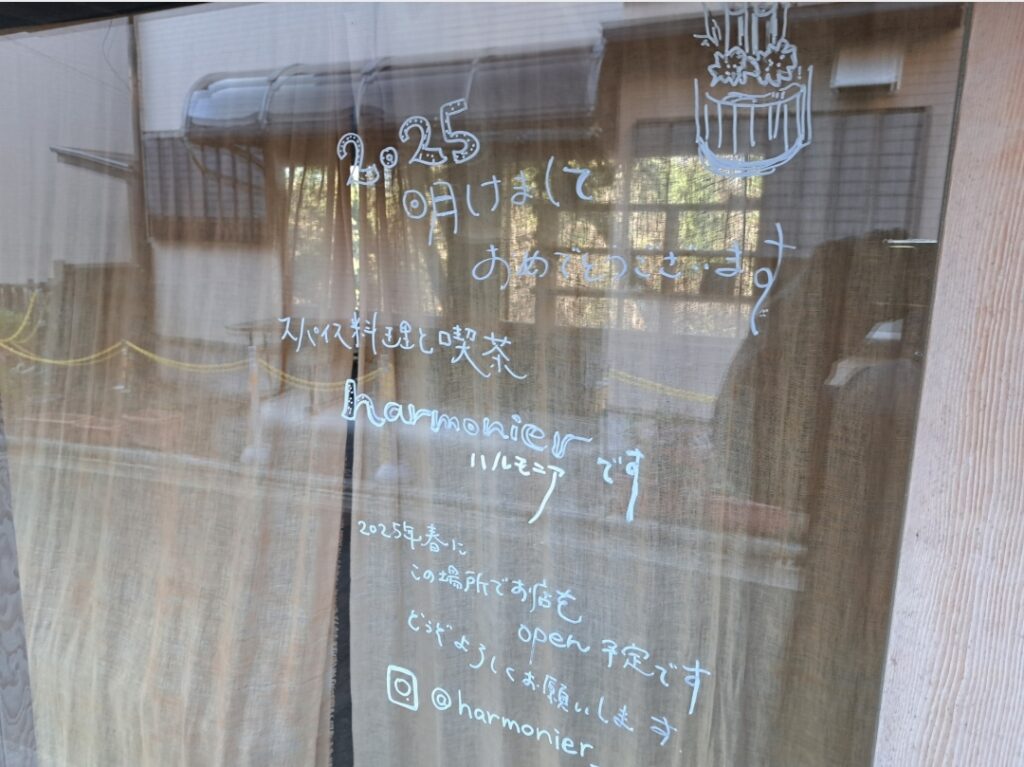 2025
明けまして
おめでとうございます
スパイス料理と喫茶
harmonier です
ハルモニア
2025年春に
この場所でお店を
open 予定です
どうぞよろしくお願いします
@harmonier_